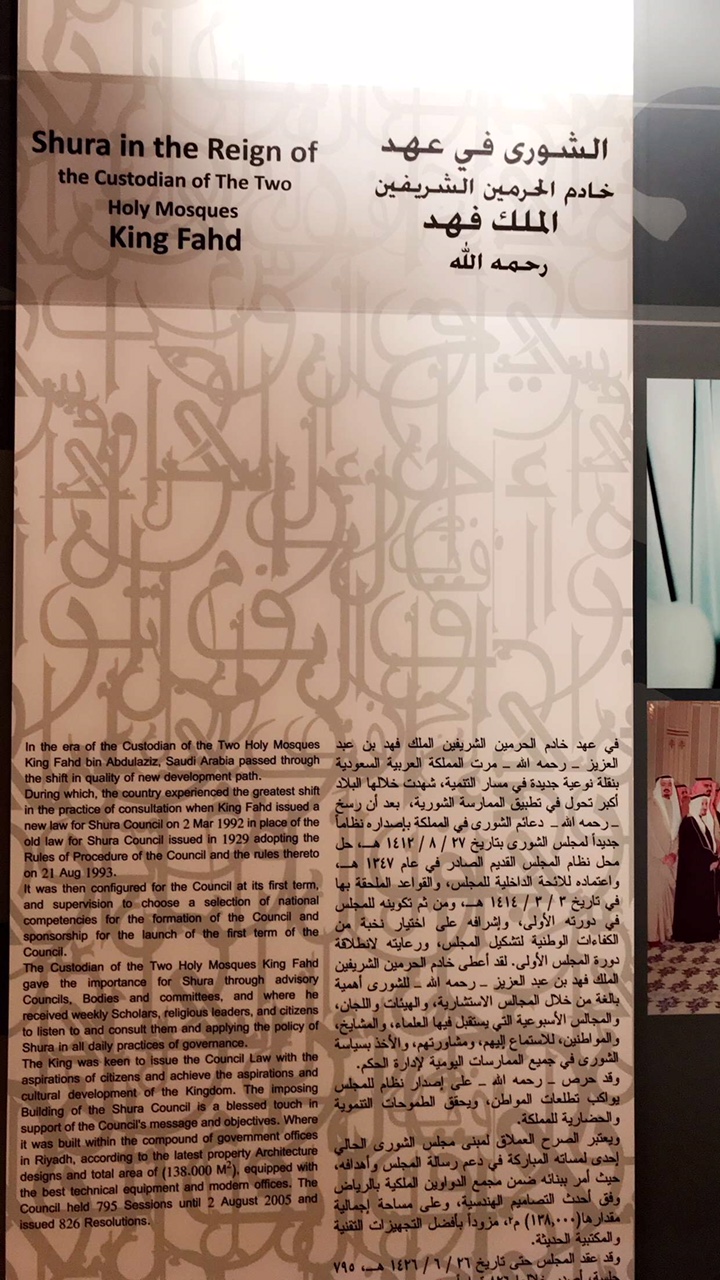 Shura in the Reign of
the Custodian of The Two
Holy Mosques
King Fahd
الشورى في عهد
خادم الحرمين الشريفين
الملك فهد
رحمه الله
In the era of the Custodian of the Two Holy Mosques
King Fahd bin Abdulaziz, Saudi Arabia passed through
the shift in quality of new development path.
During which, the country experienced the greatest shift
in the practice of consultation when King Fahd issued a
new law for Shura Council on 2 Mar 1992 in place of the
old law for Shura Council issued in 1929 adopting the
Rules of Procedure of the Council and the rules thereto
on 21 Aug 1993.
It was then configured for the Council at its first term,
and supervision to choose a selection of national
competencies for the formation of the Council and
sponsorship for the launch of the first term of the
Council.
The Custodian of the Two Holy Mosques King Fahd
gave the importance for Shura through advisory
Councils, Bodies and committees, and where he
received weekly Scholars, religious leaders, and citizens
to listen to and consult them and applying the policy of
Shura in all daily practices of governance.
The King was keen to issue the Council Law with the
aspirations of citizens and achieve the aspirations and
cultural development of the Kingdom. The imposing
Building of the Shura Council is a blessed touch in
support of the Council's message and objectives. Where
it was built within the compound of government offices
in Riyadh, according to the latest property Architecture
designs and total area of (138.000 M²), equipped with
the best technical equipment and modern offices. The
Council held 795 Sessions until 2 August 2005 and
issued 826 Resolutions.
في عهد خادم الحرمين الشريفين الملك فهد بن عبد
العزيز ـ رحمه الله ـ مرت المملكة العربية السعودية
بنقلة نوعية جديدة في مسار التنمية، شهدت خلالها البلاد
أكبر تحول في تطبيق الممارسة الشورية، بعد أن رسخ
ـ رحمه الله ـ دعائم الشورى في المملكة بإصداره نظاماً
جديداً لمجلس الشورى بتاريخ ٢٧ / ٨ / ١٤١٢ هـ، حل
محل نظام المجلس القديم الصادر في عام ١٣٤٧ هـ،
واعتماده للائحة الداخلية للمجلس، والقواعد الملحقة بها
في تاريخ ٣ / ٣ / ١٤١٤ هـ، ومن ثم تكوينه للمجلس
في دورته الأولى، وإشرافه على اختيار نخبة من
الكفاءات الوطنية لتشكيل المجلس، ورعايته لانطلاقة
دورة المجلس الأولى. لقد أعطى خادم الحرمين الشريفين
الملك فهد بن عبد العزيز ـ رحمه الله ـ للشورى أهمية
بالغة من خلال المجالس الاستشارية، والهيئات واللجان،
والمجالس الأسبوعية التي يستقبل فيها العلماء، والمشايخ،
والمواطنين، للاستماع إليهم، ومشاورتهم، والأخذ بسياسة
الشورى في جميع الممارسات اليومية لإدارة الحكم.
وقد حرص ـ رحمه الله ـ على إصدار نظام للمجلس
يواكب تطلعات المواطن، ويحقق الطموحات التنموية
والحضارية للمملكة.
ويعتبر الصرح العملاق لمبنى مجلس الشورى الحالي
إحدى لمساته المباركة في دعم رسالة المجلس وأهدافه،
حيث أمر ببنائه ضمن مجمع الدواوين الملكية بالرياض
وفق أحدث التصاميم الهندسية، وعلى مساحة إجمالية
مقدارها(١٣٨,٠٠٠) م٢، مزوداً بأفضل التجهيزات التقنية
والمكتبية الحديثة.
وقد عقد المجلس حتى تاريخ ٢٦ / ٦ / ١٤٢٦ هـ، ٧٩٥